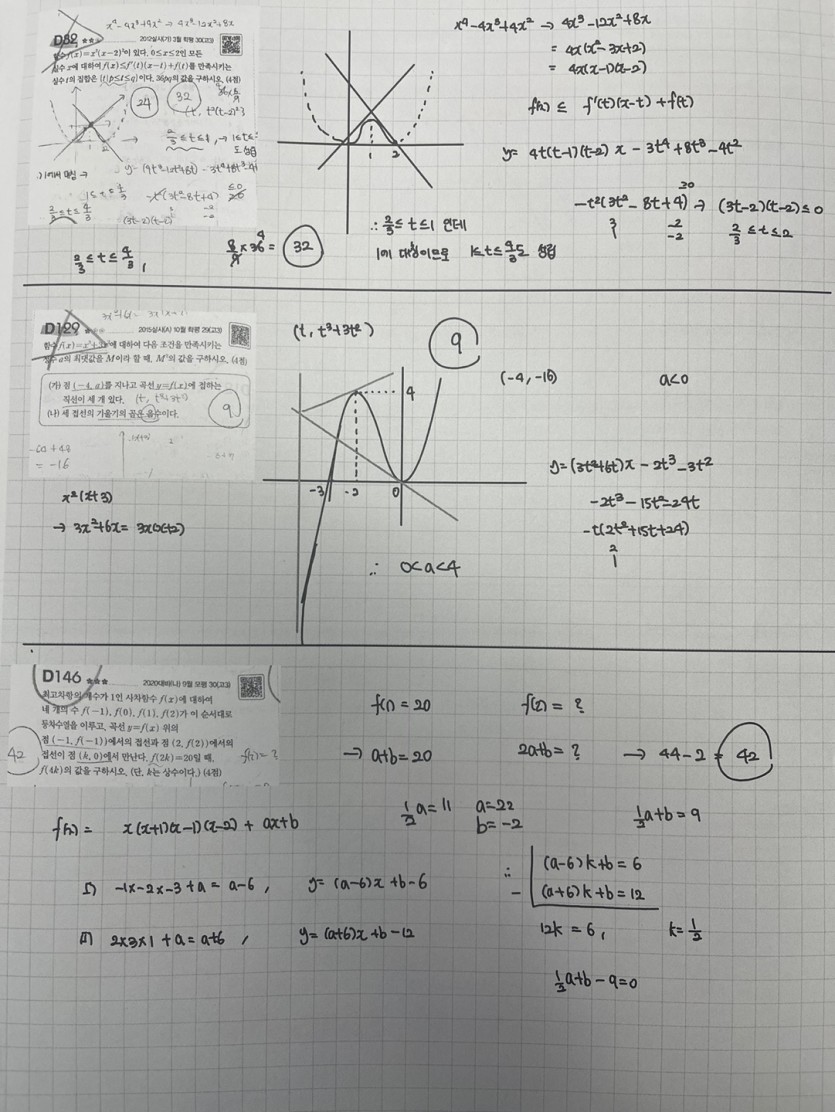 x⁴-4x³+4x² → 4x³-12x²+8x
D82 ★★★ 2012실시(가) 3월 학평 30(고3)
f(x)=x²(x-2)²이 있다. 0≤x≤2인 모든
실수 x에 대하여 f(x)≤f'(t)(x-t)+f(t)를 만족시키는
실수 t의 집합은 {t|p≤t≤q}이다. 36pq의 값을 구하시오. (4점)
24
32
(t, t²(t-2)²)
2/3≤t≤4/3
(3t-2)(t-2)
2/3≤t≤4/3,
8/9×36⁴= 32
x⁴-4x³+4x² → 4x³-12x²+8x
=4x(x²-3x+2)
=4x(x-1)(x-2)
f(x) ≤ f'(t)(x-t)+f(t)
y= 4t(t-1)(t-2)x - 3t⁴+8t³-4t²
-t²(3t²-8t+4) ≥0 → (3t-2)(t-2)≤0
3 -2 -2
2/3≤t≤2
1 2
∴ 2/3≤t≤1 인데
1에 대칭이므로 1≤t≤4/3도 성립
D129 ★★★ 2015실시(A) 10월 학평 29(고3)
함수 f(x)=x³+3x²에 대하여 다음 조건을 만족시키는
정수 a의 최댓값을 M이라 할 때, M²의 값을 구하시오. (4점)
(가) 점 (-4, a)를 지나고 곡선 y=f(x)에 접하는
직선이 세 개 있다. (t, t³+3t²)
(나) 세 접선의 기울기의 곱은 음수이다.
9
-60+48
=-16
x²(x+3)
→ 3x²+6x= 3x(x+2)
(t, t³+3t²)
9
4
-3 -2 0
∴ 0<a<4
(-4,-16) a<0
y=(3t²+6t)x - 2t³-3t²
-2t³-15t²-24t
-t(2t²+15t+24)
2
1
D146 ★★★ 2020대비(나) 9월 모평 30(고3)
최고차항의 계수가 1인 사차함수 f(x)에 대하여
네 개의 수 f(-1), f(0), f(1), f(2)가 이 순서대로
등차수열을 이루고, 곡선 y=f(x) 위의
점 (-1, f(-1))에서의 접선과 점 (2, f(2))에서의
접선이 점 (k, 0)에서 만난다. f(2k)=20일 때,
f(4k)의 값을 구하시오. (단, k는 상수이다.) (4점)
42
f(2)=?
f(1)=20 f(2)=?
→ a+b=20 2a+b=? → 44-2= 42
f(x)= x(x+1)(x-1)(x-2)+ax+b
1/2a=11 a=22
b=-2
1/2a+b=9
I) -1x-2x-3+a= a-6, y=(a-6)x+b-6
II) 2x3x1+a=a+6, y=(a+6)x+b-12
∴ (a-6)k+b=6
- (a+6)k+b=12
12k=6, k=1/2
1/2a+b-9=0